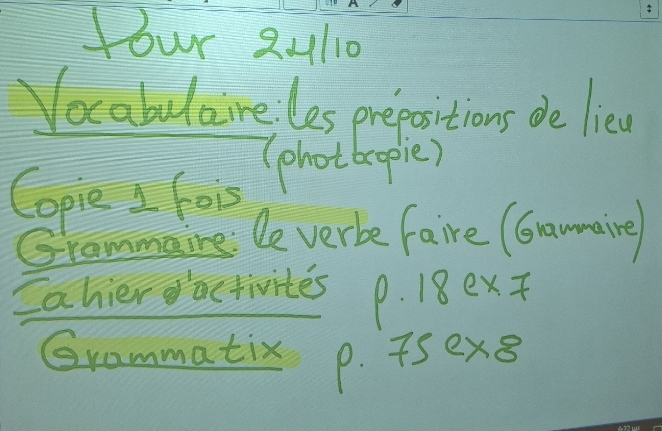 Pour 24/10
Vocabulaire: les prépositions de lieu
(photocopie)
Copie 1 fois
Grammaire: le verbe faire (Grammaire)
Cahier d'activités p. 18 ex. 7
Grammatix p. 75 ex 8